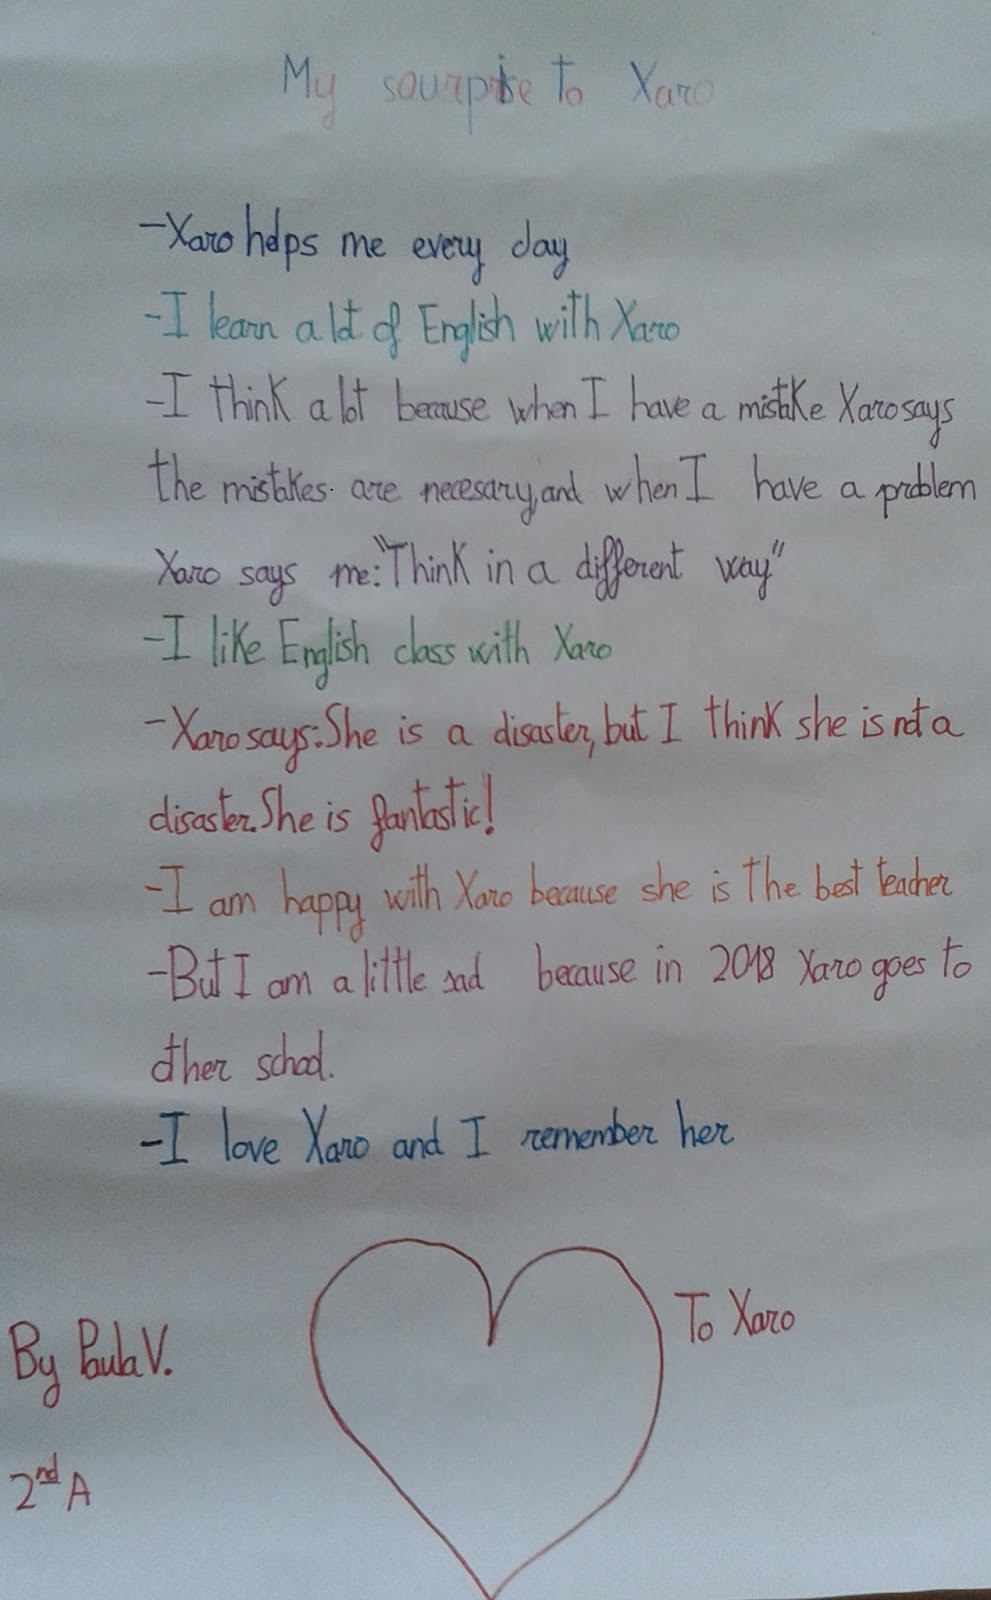 My sourprise to Xaro
-Xaro helps me every day
-I learn a lot of English with Xaro
-I think a lot because when I have a mistake Xaro says
the mistakes are necesary, and when I have a problem
Xaro says me: "Think in a different way"
-I like English class with Xaro
-Xaro says: She is a disaster, but I think she is not a
disaster. She is fantastic!
-I am happy with Xaro because she is the best teacher
-But I am a little sad because in 2018 Xaro goes to
other school.
-I love Xaro and I remember her
To Xaro
By Paula V.
2nd A